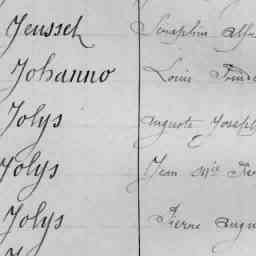 Jeussel Séraphin Alfr
Johanno Louis
Jolys Auguste Joseph
Jolys Jean Mie
Jolys Pierre Augu